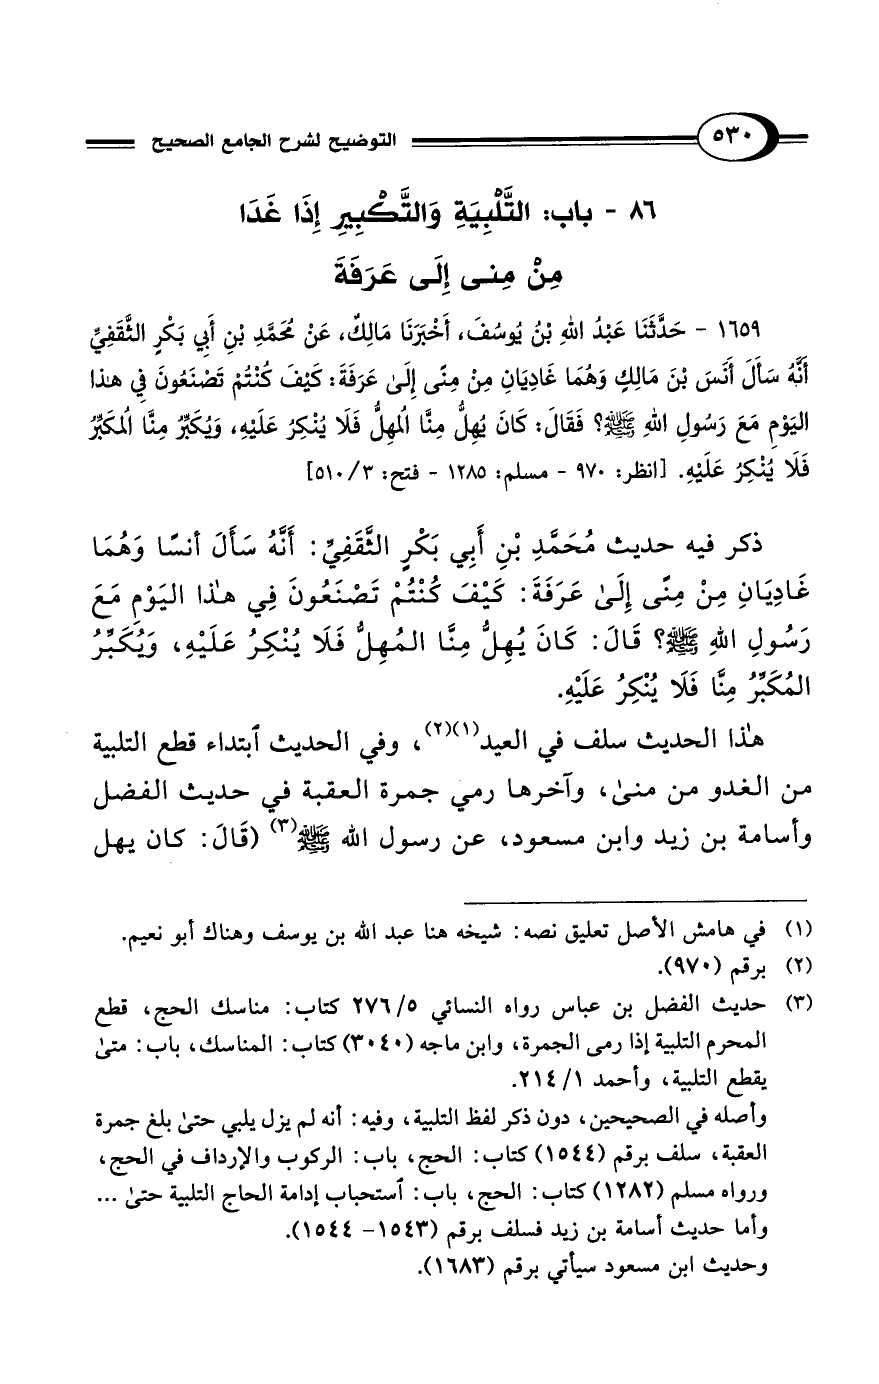 ٥٣٠ التوضيح لشرح الجامع الصحيح
٨٦ - باب: التَّلْبِيَةِ وَالتَّكْبِيرِ إِذَا غَدَا
مِنْ مِنى إِلَى عَرَفَةَ
١٦٥٩ - حَدَّثَنَا عَبْدُ اللهِ بْنُ يُوسُفَ، أَخْبَرَنَا مَالِكٌ، عَنْ مُحَمَّدِ بْنِ أَبِي بَكْرٍ الثَّقَفِيِّ
أَنَّهُ سَأَلَ أَنَسَ بْنَ مَالِكٍ وَهُمَا غَادِيَانِ مِنْ مِنًى إِلَىٰ عَرَفَةَ: كَيْفَ كُنْتُمْ تَصْنَعُونَ فِي هذا
اليَوْمِ مَعَ رَسُولِ اللهِ ﷺ؟ فَقَالَ: كَانَ يُهِلُّ مِنَّا الُمهِلُّ فَلَا يُنْكِرُ عَلَيْهِ، وَيُكَبِّرُ مِنَّا الُمكَبِّرُ
فَلَا يُنْكِرُ عَلَيْهِ. [انظر: ٩٧٠ - مسلم: ١٢٨٥ - فتح: ٥١٠/٣]
ذكر فيه حديث مُحَمَّدِ بْنِ أَبِي بَكْرٍ الثَّقَفِيِّ: أَنَّهُ سَأَلَ أنسًا وَهُمَا
غَادِيَانِ مِنْ مِنًى إِلَىٰ عَرَفَةَ: كَيْفَ كُنْتُمْ تَصْنَعُونَ فِي هٰذا اليَوْمِ مَعَ
رَسُولِ اللهِ ﷺ؟ قَالَ: كَانَ يُهِلُّ مِنَّا المُهِلُّ فَلَا يُنْكِرُ عَلَيْهِ، وَيُكَبِّرُ
المُكَبِّرُ مِنَّا فَلَا يُنْكِرُ عَلَيْهِ.
هٰذا الحديث سلف في العيد(١)(٢)، وفي الحديث ٱبتداء قطع التلبية
من الغدو من منىٰ، وآخرها رمي جمرة العقبة في حديث الفضل
وأسامة بن زيد وابن مسعود، عن رسول الله ﷺ(٣) (قَالَ: كان يهل
(١) في هامش الأصل تعليق نصه: شيخه هنا عبد الله بن يوسف وهناك أبو نعيم.
(٢) برقم (٩٧٠).
(٣) حديث الفضل بن عباس رواه النسائي ٢٧٦/٥ كتاب: مناسك الحج، قطع
المحرم التلبية إذا رمى الجمرة، وابن ماجه (٣٠٤٠) كتاب: المناسك، باب: متىٰ
يقطع التلبية، وأحمد ٢١٤/١.
وأصله في الصحيحين، دون ذكر لفظ التلبية، وفيه: أنه لم يزل يلبي حتىٰ بلغ جمرة
العقبة، سلف برقم (١٥٤٤) كتاب: الحج، باب: الركوب والإرداف في الحج،
ورواه مسلم (١٢٨٢) كتاب: الحج، باب: ٱستحباب إدامة الحاج التلبية حتىٰ ...
وأما حديث أسامة بن زيد فسلف برقم (١٥٤٣- ١٥٤٤).
وحديث ابن مسعود سيأتي برقم (١٦٨٣).